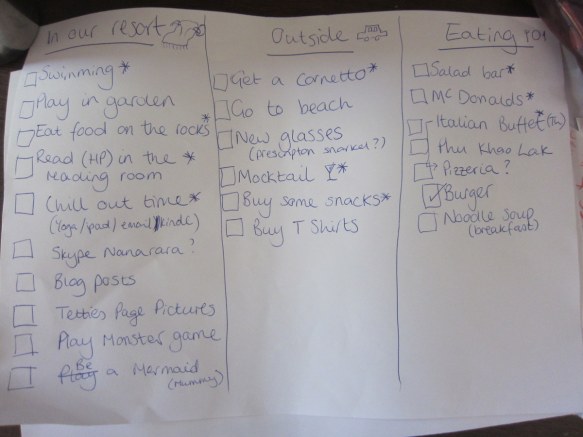 In our resort
Swinming*
Play in garden
Eat food on the rocks*
Read (HP) in the *
reading room
Chill out time*
(Yoga/ipad/email/kindle)
Skype Nanarara?
Blog posts
Tetties Page Pictures
Play Monster game
Play Be a Mermaid
(mummy)
Outside
Get a Cornetto*
Go to beach
New glasses
(prescription snorkel?)
Mocktail *
Buy some snacks*
Buy T Shirts
Eating
Salad bar*
McDonalds*
Italian Buffet*
Thu Khao Lak
Pizzeria?
Burger
Noodle soup
(breakfast)